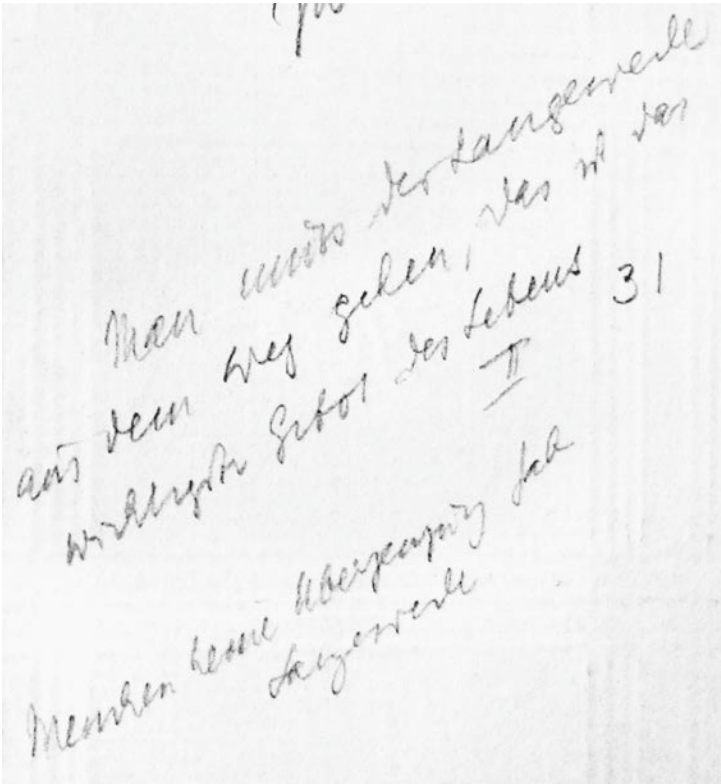 Man muß der Langeweile
aus dem Weg gehen, das ist das
wichtigste Gebot des Lebens 31
II
Menschen keine Überzeugung
Langeweile